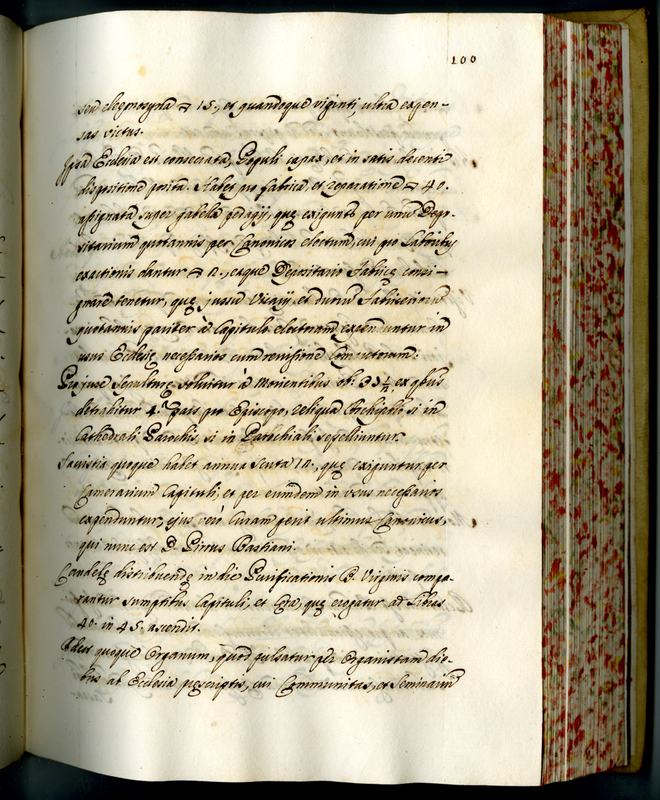 100
seu eleemosyna ▽ 15., et quandoque viginti, ultra expen-
sas victus.
Ipsa Ecclesia est consecrata, Populi capax, et in satis decenti
dispositione posita. Habet pro fabrica, et reparatione ▽ 40.
assignata super gabella pedagij, quę exiguntur per unum Depo-
sitarium quotannis per Canonicos electum, cui pro laboribus
exactionis dantur ▽ 2., eaque Depositario Fabricę consi-
gnare tenetur, quę jussu Vicarij, et duorum Fabriceriorum
quotannis pariter à Capitulo electorum expenduntur in
usus Ecclesię necessarios cum revisione Computorum.
Pro jure Sepulturę solvitur à morientibus ex qbus
detrahitur 4.ᵃ pars pro Episcopo, reliqua Archipbro si in
Cathedrali, Parochis, si in Parochiali sepeliuntur.
Sacristia quoque habet annua Scuta 12., quę exiguntur per
Camerarium Capituli, et per eumdem in usus necessarios
expenduntur, ejus verò Curam gerit ultimus Canonicus,
qui nunc est D. Pirrus Bastiani.
Candelę distribuendę in die Purificationis B. Virginis compa-
rantur sumptibus Capituli, et Cera, quę erogatur ad Libras
40. in 45. ascendit.
Adest quoque Organum, quod pulsatur per Organistam die-
bus ab Ecclesia pręscriptis, cui Communitas, et Seminariũ